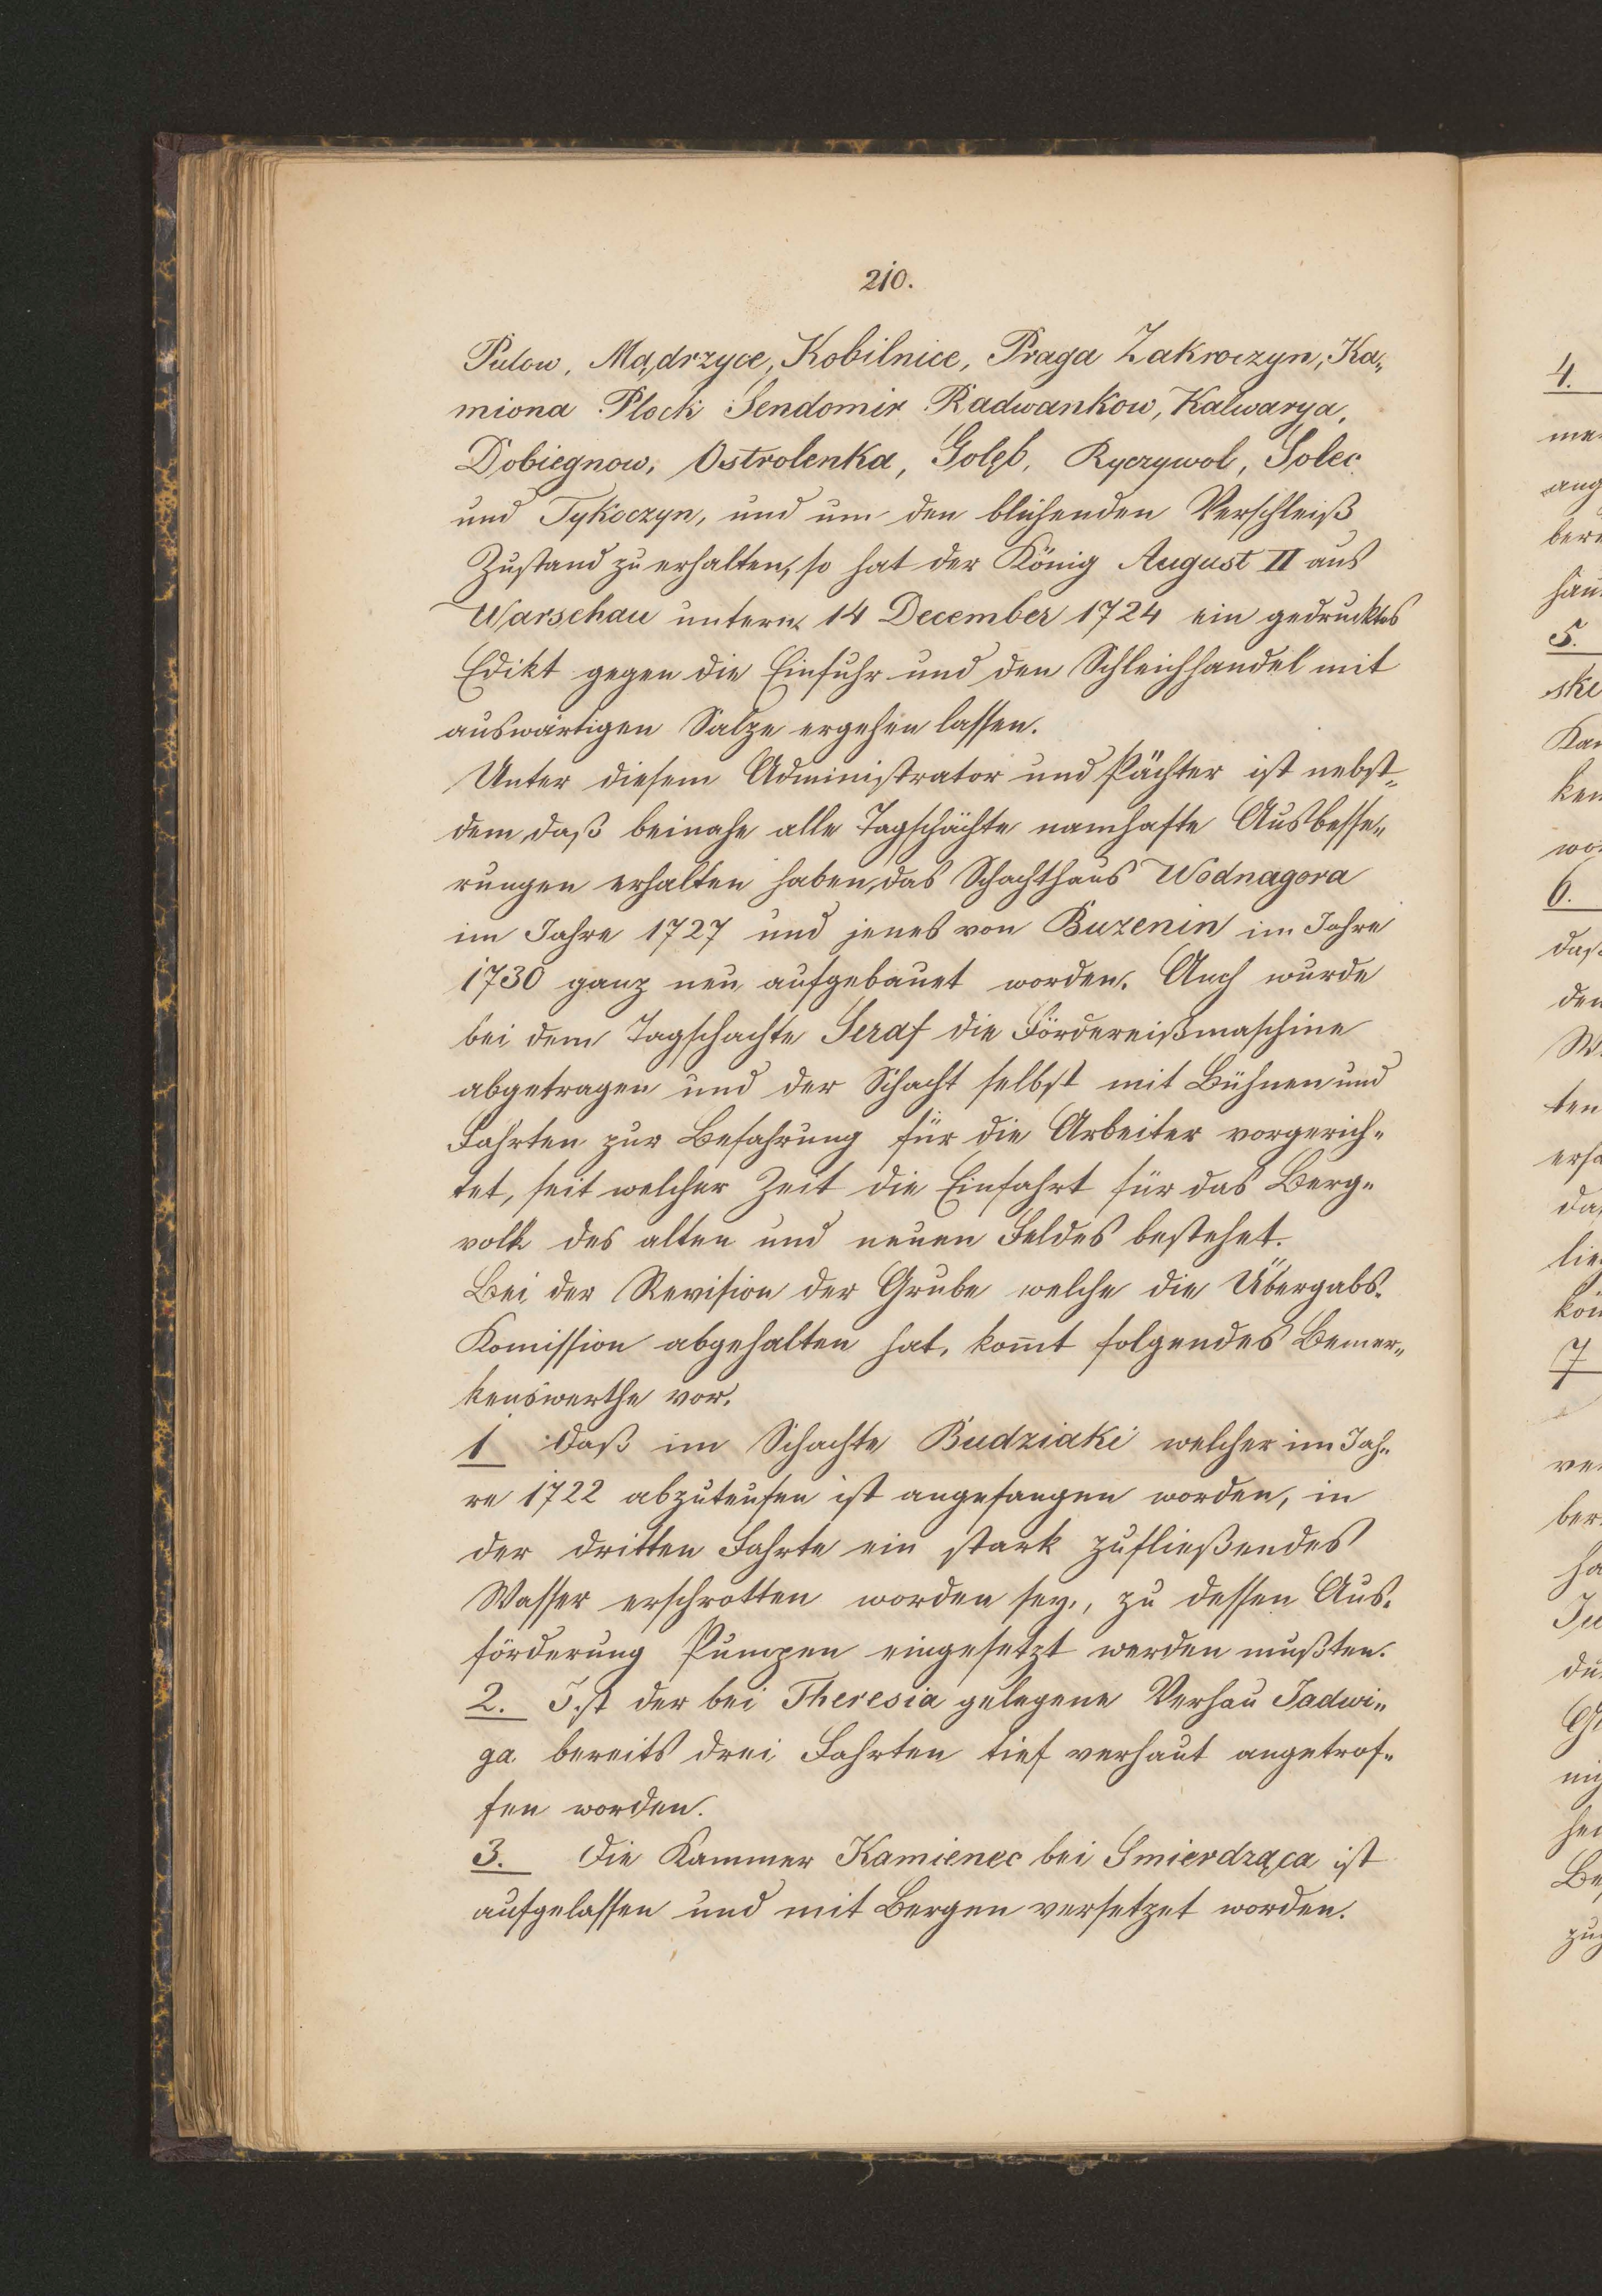 210.
Pulow, Mądrzyce, Kobilnice, Praga Zakroczyn, Ka„
miona Plock Sendomir Radwankow, Kalwarya,
Dobiegnow, Ostrolenka, Golęb, Ryczywol, Solec
und Tykoczyn, und um den blühenden Verschleiß
Zustand zu erhalten, so hat der König August II aus
Warschau unterm 14 December 1724 ein gedrucktes
Edikt gegen die Einfuhr und den Schleichhandel mit
auswärtigen Salze ergehen lassen.
Unter diesem Administrator und Pächter ist nebst„
dem, daß beinahe alle Tagschächte namhafte Ausbesse„
rungen erhalten haben, das Schachthaus Wodnagora
im Jahre 1727 und jenes von Buzenin im Jahre
1730 ganz neu aufgebauet worden. Auch wurde
bei dem Tagschachte Seraf die Fördereißmaschine
abgetragen und der Schacht selbst mit Bühnen und
Fahrten zur Befahrung für die Arbeiter vorgerich„
tet, seit welcher Zeit die Einfahrt für das Berg„
volk des alten und neuen Feldes bestehet.
Bei der Revision der Grube welche die Übergabs„
Komission abgehalten hat, komt folgendes Bemer„
kenswerthe vor.
1 Daß im Schachte Budziaki welcher im Jah„
re 1722 abzuteufen ist angefangen worden, in
der dritten Fahrte ein stark zufließendes
Wasser erschrotten worden sey, zu dessen Aus„
förderung Pumpen eingesetzt werden mußten.
2. Ist der bei Theresia gelegene Verhau Jadwi„
ga bereits drei Fahrten tief verhaut angetrof„
fen worden.
3. Die Kammer Kamienec bei Smierdząca ist
aufgelassen und mit Bergen versetzet worden.
4.
5.
6.
7